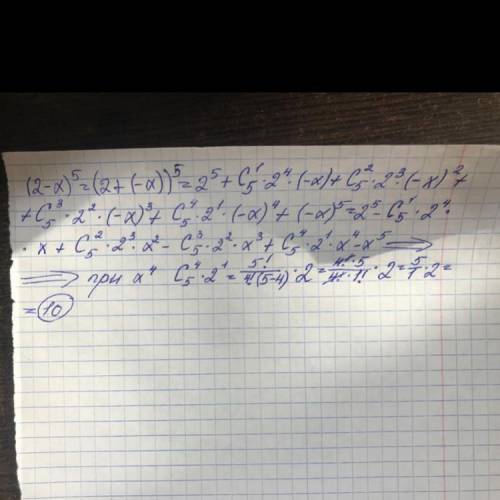 (2-x)⁵=(2+(-x))⁵=2⁵+C₅¹·2⁴·(-x)+C₅²·2³·(-x)²+
+C₅³·2²·(-x)³+C₅⁴·2¹·(-x)⁴+(-x)⁵=2⁵-C₅¹·2⁴·
·x+C₅²·2³·x²-C₅³·2²·x³+C₅⁴·2¹·x⁴-x⁵⟹
⟹ при x⁴ C₅⁴·2¹=5!/4!(5-4)·2=4!·5/4!·1!·2=5/1·2=
=10